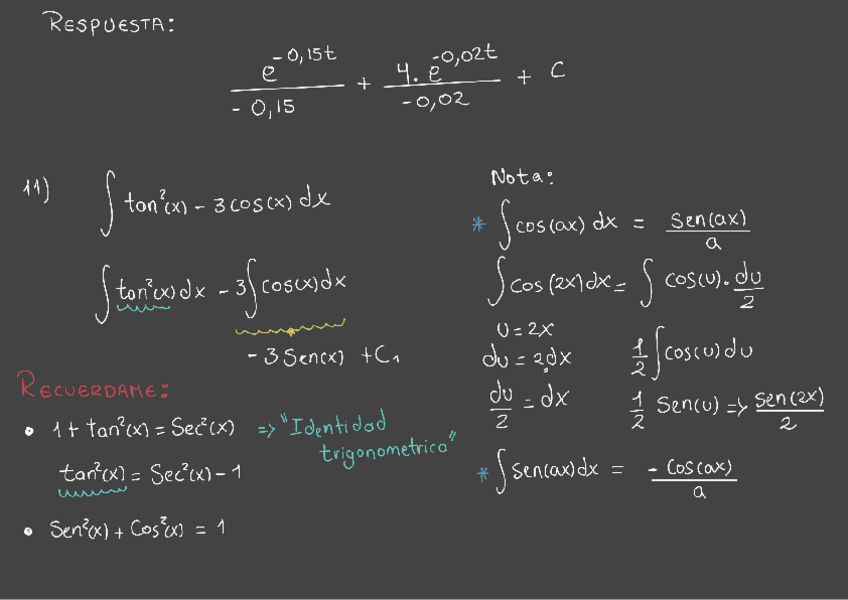 RESPUESTA:
e^-0,15t / -0,15 + 4.e^-0,02t / -0,02 + C
11) ∫ tan²(x) - 3 cos(x) dx
∫ tan²(x) dx - 3 ∫ cos(x) dx
- 3 Sen(x) + C₁
RECUERDAME:
• 1 + tan²(x) = Sec²(x) => "Identidad
trigonometrica"
tan²(x) = Sec²(x) - 1
• Sen²(x) + Cos²(x) = 1
Nota:
* ∫ cos(ax) dx = sen(ax) / a
∫ cos(2x) dx = ∫ cos(u) . du / 2
u = 2x
du = 2.dx
du / 2 = dx
1/2 ∫ cos(u) du
1/2 Sen(u) => sen(2x) / 2
* ∫ sen(ax) dx = - cos(ax) / a